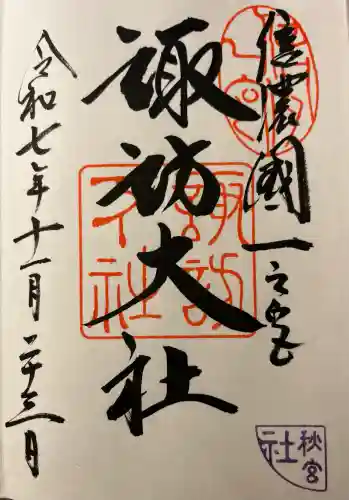 信濃國一之宮
諏訪大社
令和七年十一月二十三日
諏訪
大社
秋宮
社